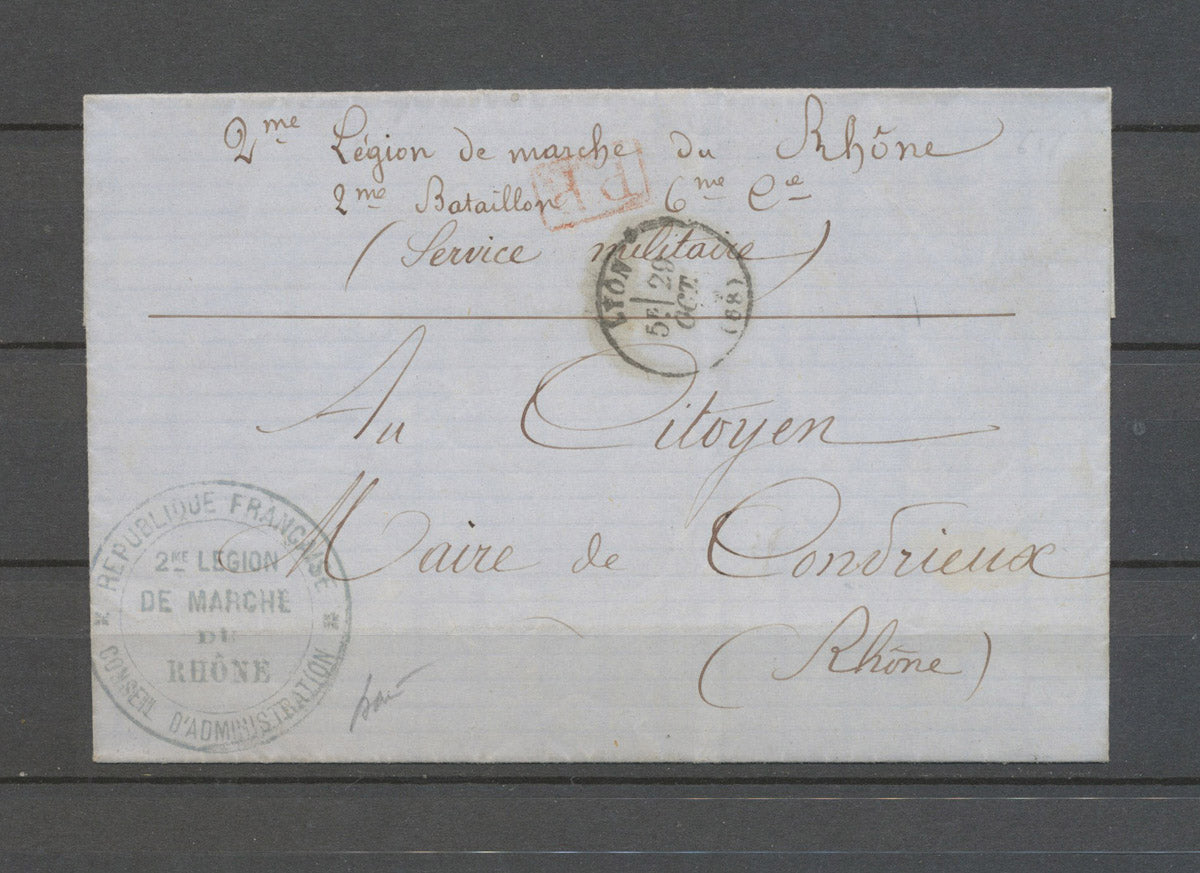 2me Légion de marche du Rhône
2me Bataillon 6me Cie
P.P.
(Service militaire)
LYON
5E 29
OCT.
(68)
Au Citoyen
Maire de Condrieux
(Rhône)
* REPUBLIQUE FRANÇAISE *
2ME LEGION
DE MARCHE
DU
RHÔNE
CONSEIL D'ADMINISTRATION